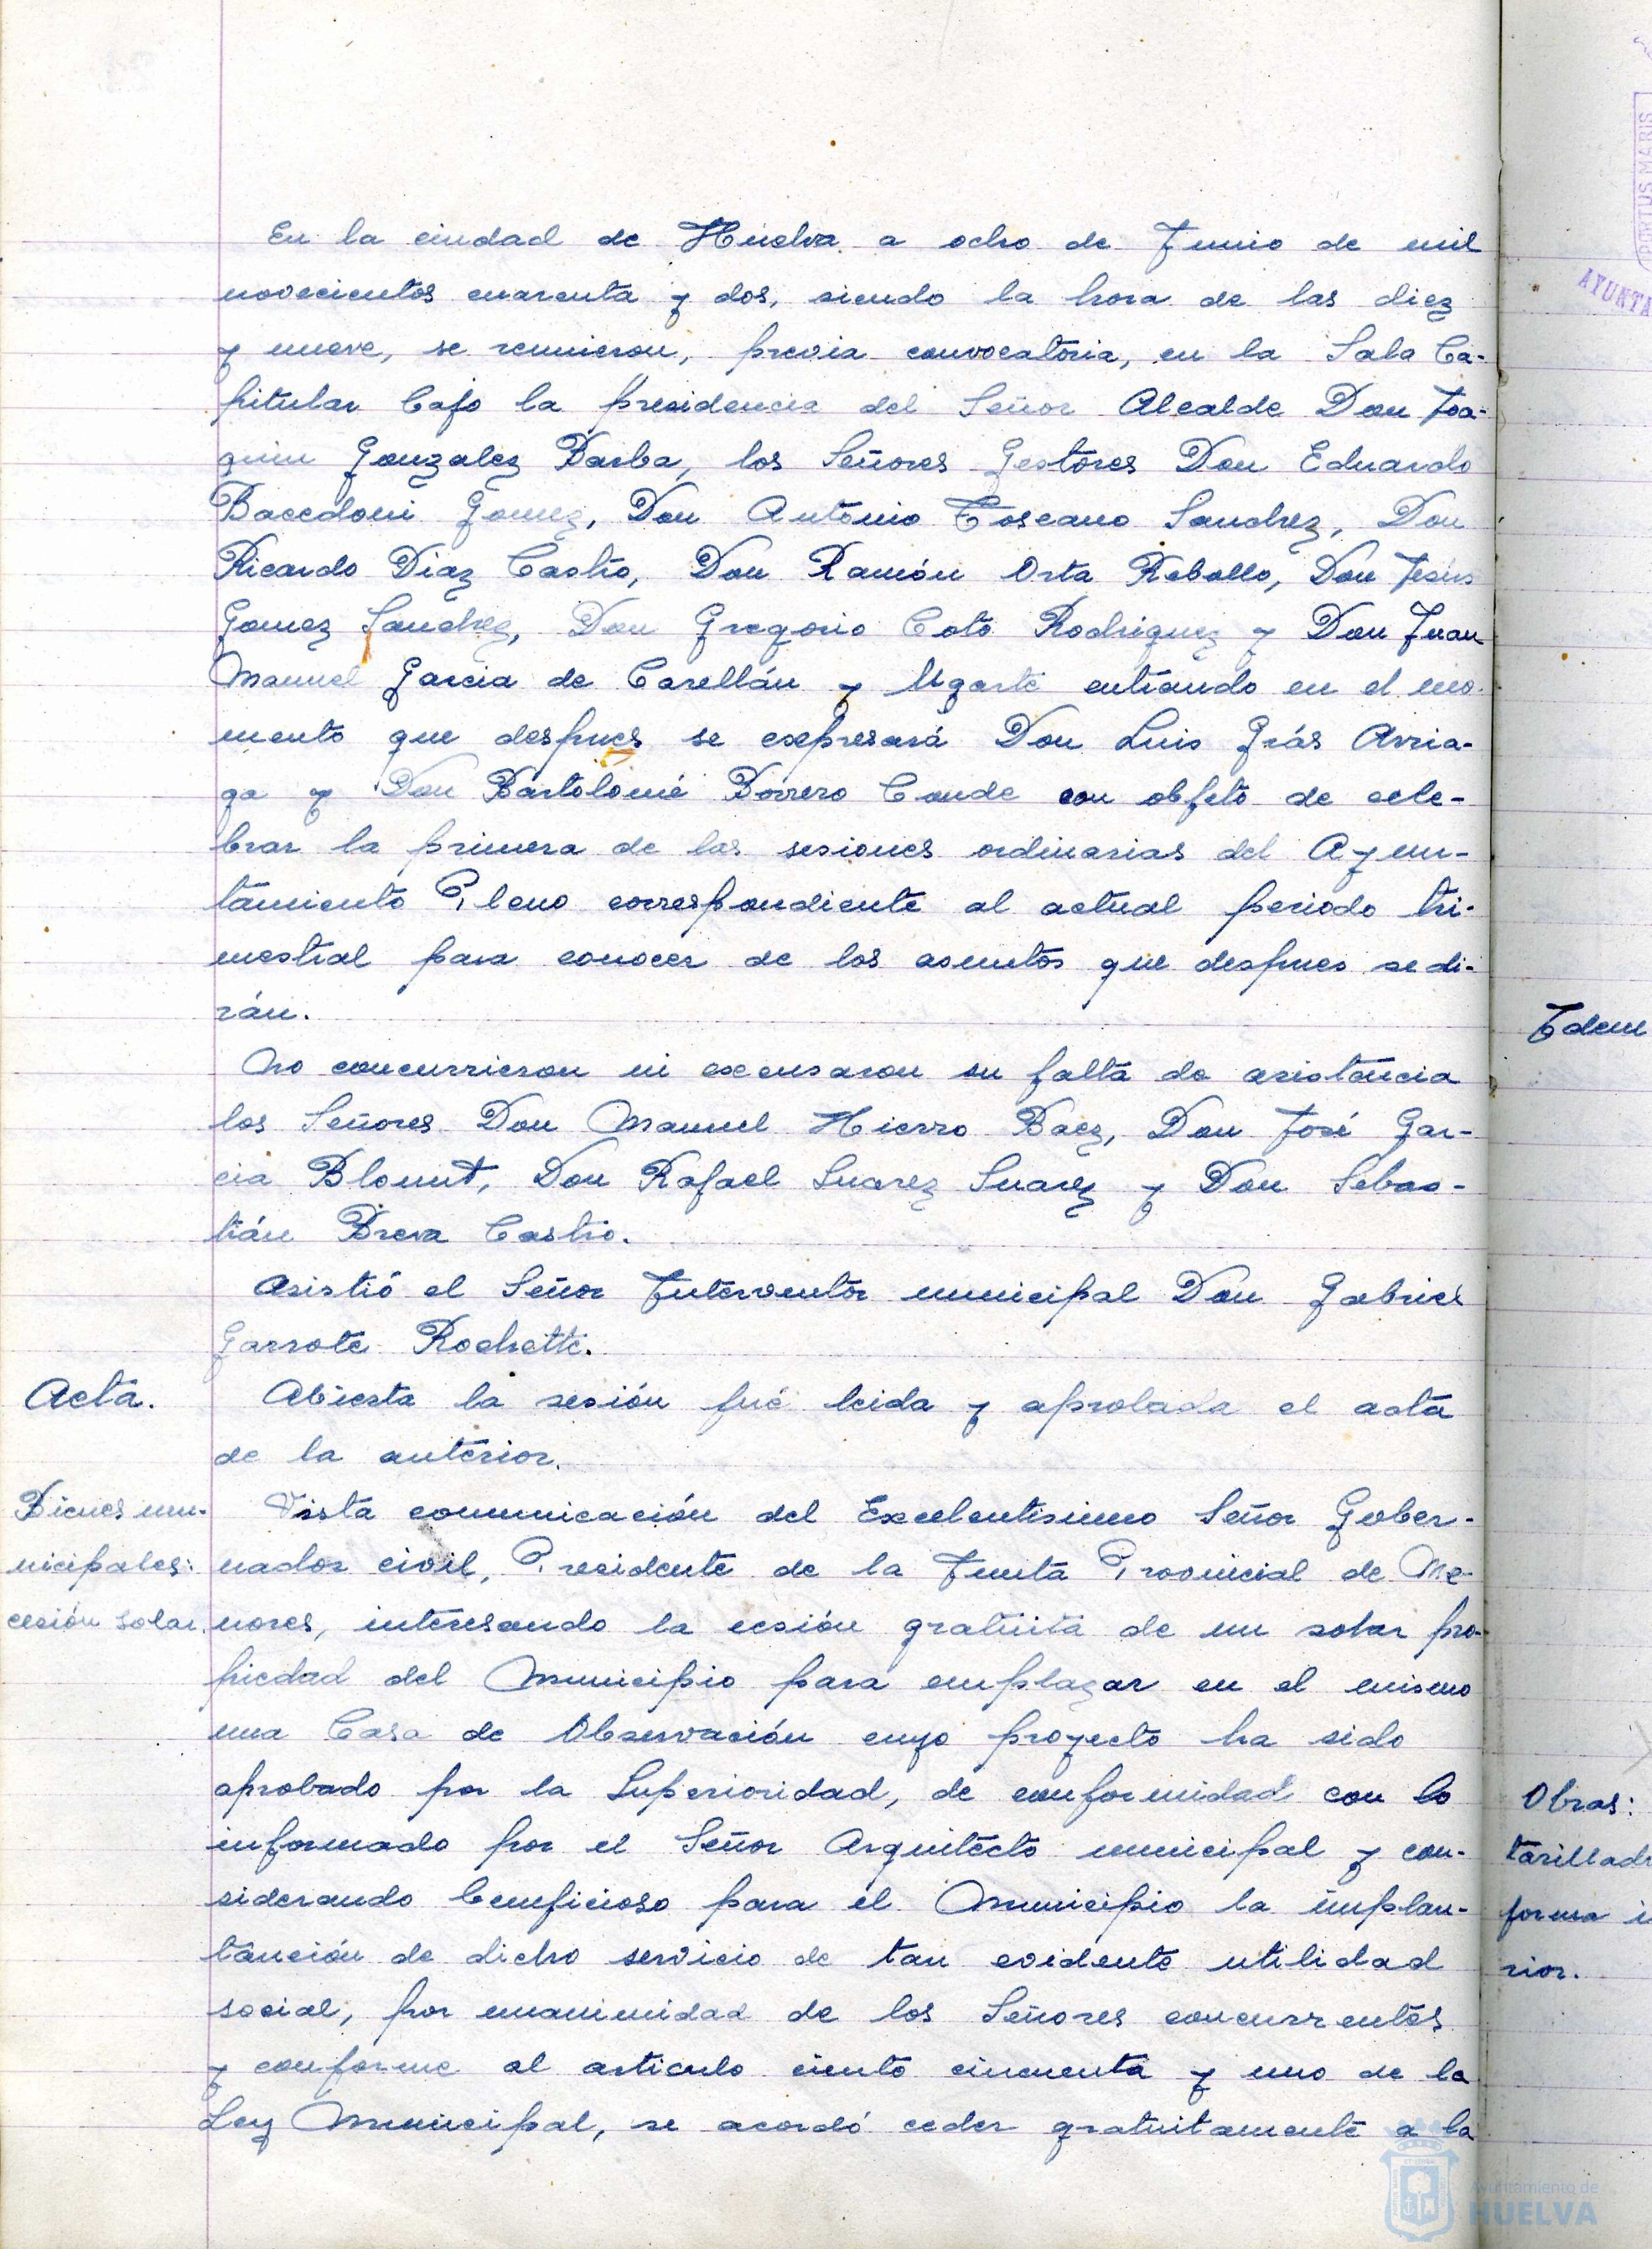 En la ciudad de Huelva a ocho de Junio de mil
novecientos cuarenta y dos, siendo la hora de las diez
y nueve, se reunieron, previa convocatoria, en la Sala Ca-
pitular bajo la presidencia del Señor Alcalde Don Joa-
quin Gonzalez Barba, los Señores Gestores Don Eduardo
Bacedoni Gomez, Don Antonio Toscano Sanchez, Don
Ricardo Diaz Castro, Don Ramón Orta Rebollo, Don Jesús
Gomez Sanchez, Don Gregorio Coto Rodriguez y Don Juan
Manuel Garcia de Carellán y Ugarte entrando en el mo-
mento que despues se expresará Don Luis Grás Arria-
ga y Don Bartolomé Borrero Conde con objeto de cele-
brar la primera de las sesiones ordinarias del Ayun-
tamiento Pleno correspondiente al actual periodo tri-
mestral para conocer de los asuntos que despues se di-
rán.
No concurrieron ni excusaron su falta de asistencia
los Señores Don Manuel Hierro Baez, Don José Gar-
cia Blount, Don Rafael Suarez Suarez y Don Sebas-
tián Breva Castro.
Asistió el Señor Interventor municipal Don Gabriel
Garrote Rochette.
Acta. Abierta la sesión fué leida y aprobada el acta
de la anterior.
Bienes mu- Vista comunicación del Excelentisimo Señor Gober-
nicipales: nador civil, Presidente de la Junta Provincial de Me-
cesión solar. nores, interesando la cesión gratuita de un solar pro-
piedad del Municipio para emplazar en el mismo
una Casa de Observación cuyo proyecto ha sido
aprobado por la Superioridad, de conformidad con lo
informado por el Señor Arquitecto municipal y con-
siderando beneficioso para el Municipio la implan-
tanción de dicho servicio de tan evidente utilidad
social, por unanimidad de los Señores concurrentes
y conforme al articulo ciento cincuenta y uno de la
Ley Municipal, se acordó ceder gratuitamente a la
PORTUS MARIS
AYUNTA
Idem
Obras:
tarillado
forma i
rior.
Ayuntamiento de
HUELVA